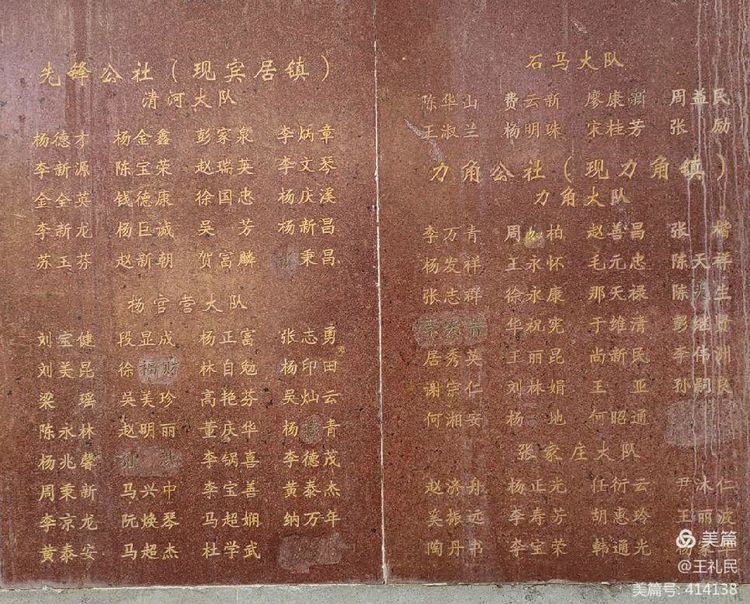 先锋公社(现宾居镇)
清河大队
杨德才 杨金鑫 彭家泉 李炳章
李新源 陈宝荣 赵瑞英 李文琴
金全英 钱德康 徐国忠 杨庆溪
李新龙 杨巨诚 吴芳 杨新昌
苏玉芬 赵新朝 贺富麟 秉昌
杨官营大队
刘宝健 段显成 杨正富 张志勇
刘美昆 徐 林自勉 杨印田
梁瑶 吴美珍 高艳芬 吴灿云
陈永林 赵明丽 董庆华 杨 青
杨兆馨 李锅喜 李德茂
周秉新 马兴中 李宝善 黄泰杰
李京龙 阮焕琴 马超娴 纳万年
黄泰安 马超杰 杜学武
石马大队
陈华山 费云新 廖康新 周益民
王淑兰 杨明珠 宋桂芳 张励
力角公社(现力角镇)
力角大队
李万青 周 柏 赵善昌 张楷
杨发祥 王永怀 毛元忠 陈天祥
张志群 徐永康 那天禄 陈 生
华祝宪 于维清 彭继贤
居秀英 王丽昆 尚新民 李伟洲
谢宗仁 刘林娟 王亚 孙嗣民
何湘安 杨 地 何昭通
张家庄大队
赵济舟 杨正光 任衍云 尹沐仁
吴振远 李寿芳 胡惠玲 王丽波
陶丹书 李宝荣 韩通光 杨 华
美篇
@王礼民
美篇号: 414138